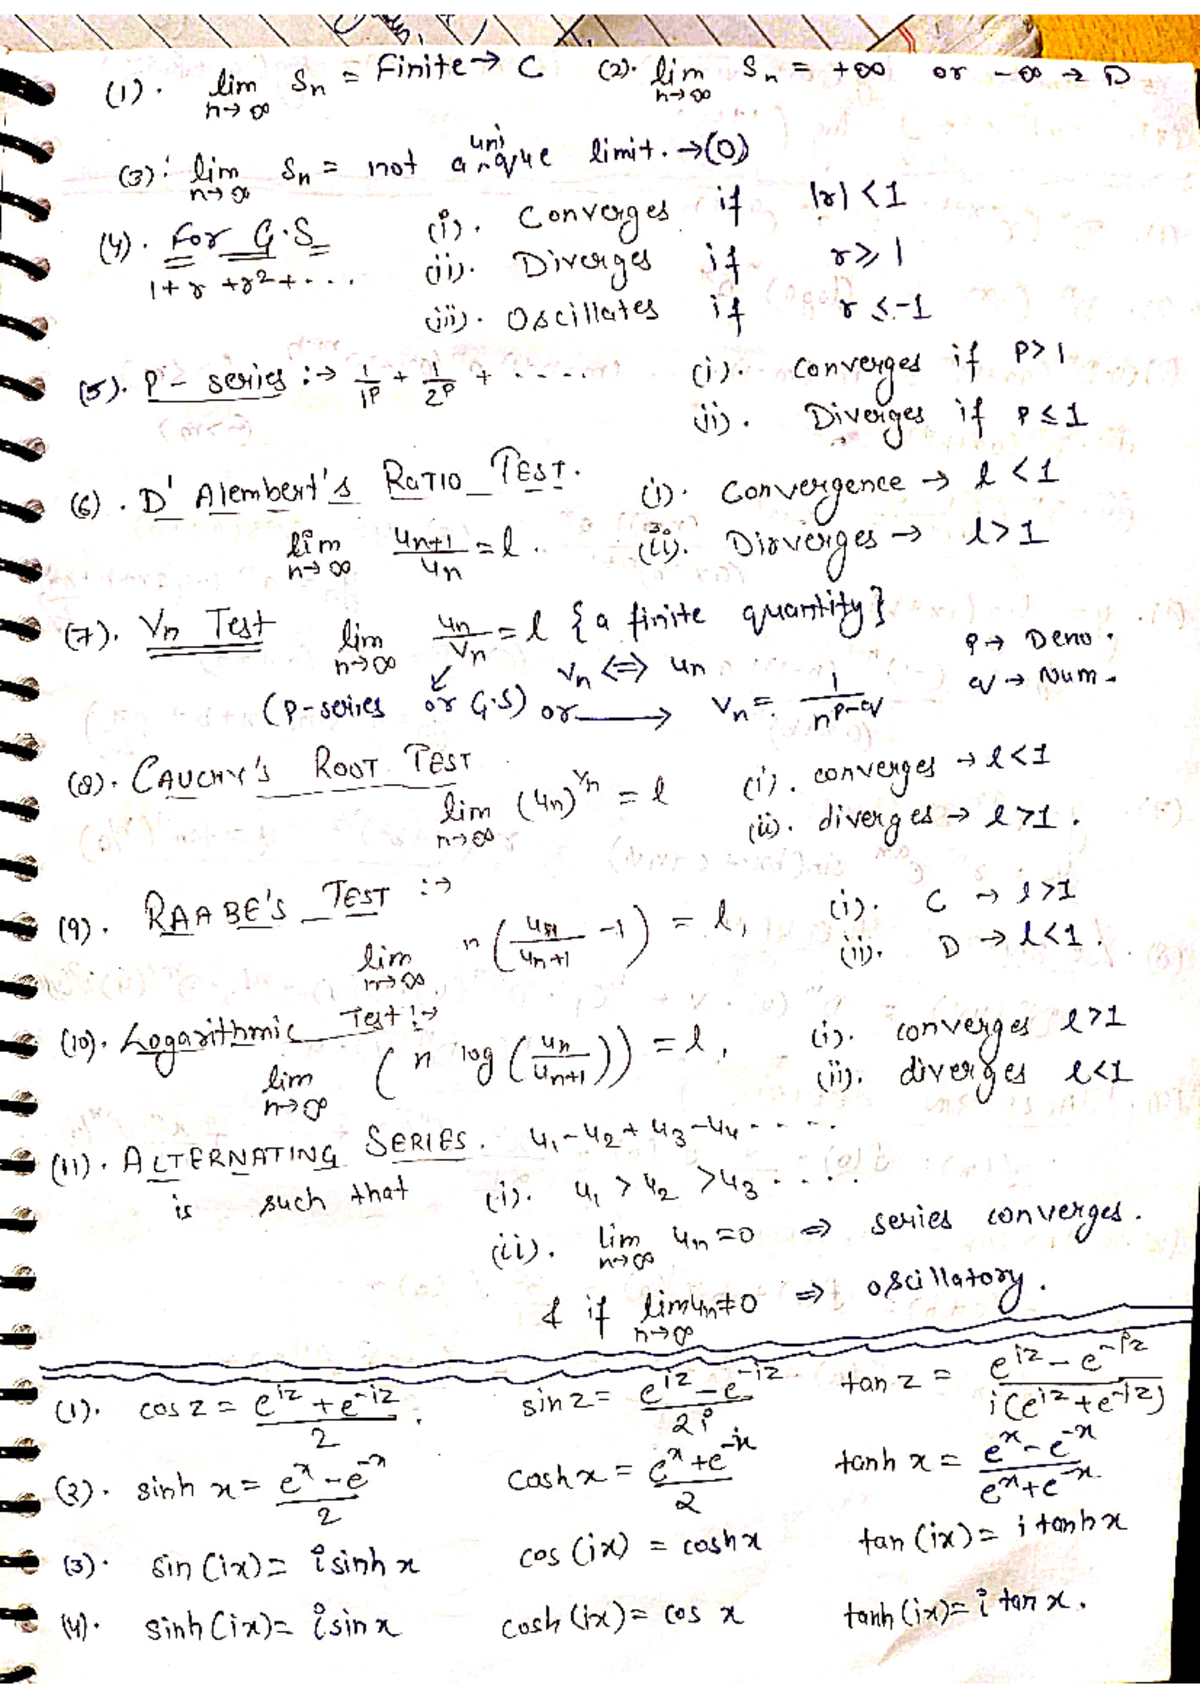 (1). lim n→∞ Sn = Finite → C (2). lim n→∞ Sn = +∞ or -∞ → D
(3). lim n→∞ Sn = not a unique limit. → (O)
(4). For G.S (i). Converges if |r| < 1
1 + r + r² + . . . (ii). Diverges if r ≥ 1
(iii). Oscillates if r ≤ -1
(5). P-series :→ 1/1^P + 1/2^P + . . . . . (i). Converges if P > 1
(ii). Diverges if P ≤ 1
(6). D'Alembert's RATIO TEST. (i). Convergence → l < 1
lim n→∞ Un+1/Un = l. (ii). Diverges → l > 1
(7). Vn Test lim n→∞ Un/Vn = l {a finite quantity}
P → Deno.
Vn ⇔ Un q → Num.
(P-series or G.S) or → Vn = 1/n^(P-q)
(8). CAUCHY'S ROOT TEST (i). converges → l < 1
lim n→∞ (Un)^(1/n) = l (ii). diverges → l > 1.
(9). RAABE'S TEST :→ (i). C → l > 1
lim n→∞ n(Un/Un+1 - 1) = l, (ii). D → l < 1.
(10). Logarithmic Test :→ (i). converges l > 1
lim n→∞ (n log(Un/Un+1)) = l, (ii). diverges l < 1
(11). ALTERNATING SERIES. U1 - U2 + U3 - U4 - . . . .
is such that (i). U1 > U2 > U3 . . . . .
(ii). lim n→∞ Un = 0 ⇒ series converges.
& if lim n→∞ Un ≠ 0 ⇒ oscillatory.
(1). cos z = (e^iz + e^-iz)/2. sin z = (e^iz - e^-iz)/2i tan z = (e^iz - e^-iz)/i(e^iz + e^-iz)
(2). sinh x = (e^x - e^-x)/2 cosh x = (e^x + e^-x)/2 tanh x = (e^x - e^-x)/(e^x + e^-x).
(3). sin (ix) = i sinh x cos (ix) = cosh x tan (ix) = i tanh x
(4). sinh (ix) = i sin x cosh (ix) = cos x tanh (ix) = i tan x.